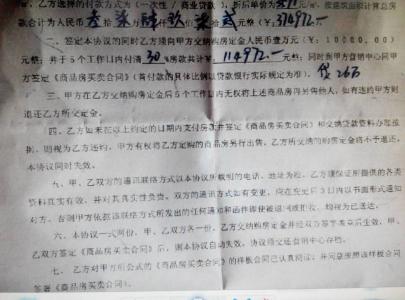 乙方选择的付款方式为(一次性/商业贷款),折后单价为 元/㎡,按建筑面积计算总房
款合计为人民币叁拾柒肆玖柒贰元整(¥374972.一
二、签定本协议的同时乙方须向甲方交纳购房定金人民币壹万元(¥:10000.00)
元整;并于5个工作日内付清30%房款共计¥:114972.一元整;同时到甲方营销中心同甲
方签定《商品房买卖合同》(首付款的具体比例以贷款银行实际规定为准)。贷26万
三、甲方在乙方交纳购房定金后5个工作日内无权将上述商品房再另售他人,如有违约甲方则
退还乙方所交定金。
四、乙方如未在以上约定的日期内支付房款并签定《商品房买卖合同》和交纳贷款资料办理按
揭,则视为乙方违约,甲方有权将乙方定购的商品房另行出售,乙方所交纳的购房定金将不予退还,
本协议同时失效。
九、甲、乙双方的通讯联络方式以本协议所载明的电话、地址为准,乙方须保证所提供的各类
资料真实有效,并对其真实性负责。双方的通讯方式如有变更,应在变更后3日内以书面形式通知
对方,否则甲方依据该联络方式所发出的任何通知和函件即使被退回或拒收,均视为已送达。
六、本协议一式两份,甲、乙双方各一份,乙方交纳购房定金并经双方签字盖章后生效,甲、
乙双方签定《商品房买卖合同》后,则本协议自动失效,协议须交还营销中心存档。
七、乙方对甲方所公式的《商品房买卖合同》的样板合同已认真阅读,并同意按照该样板合同
签署《商品房买卖合同》。